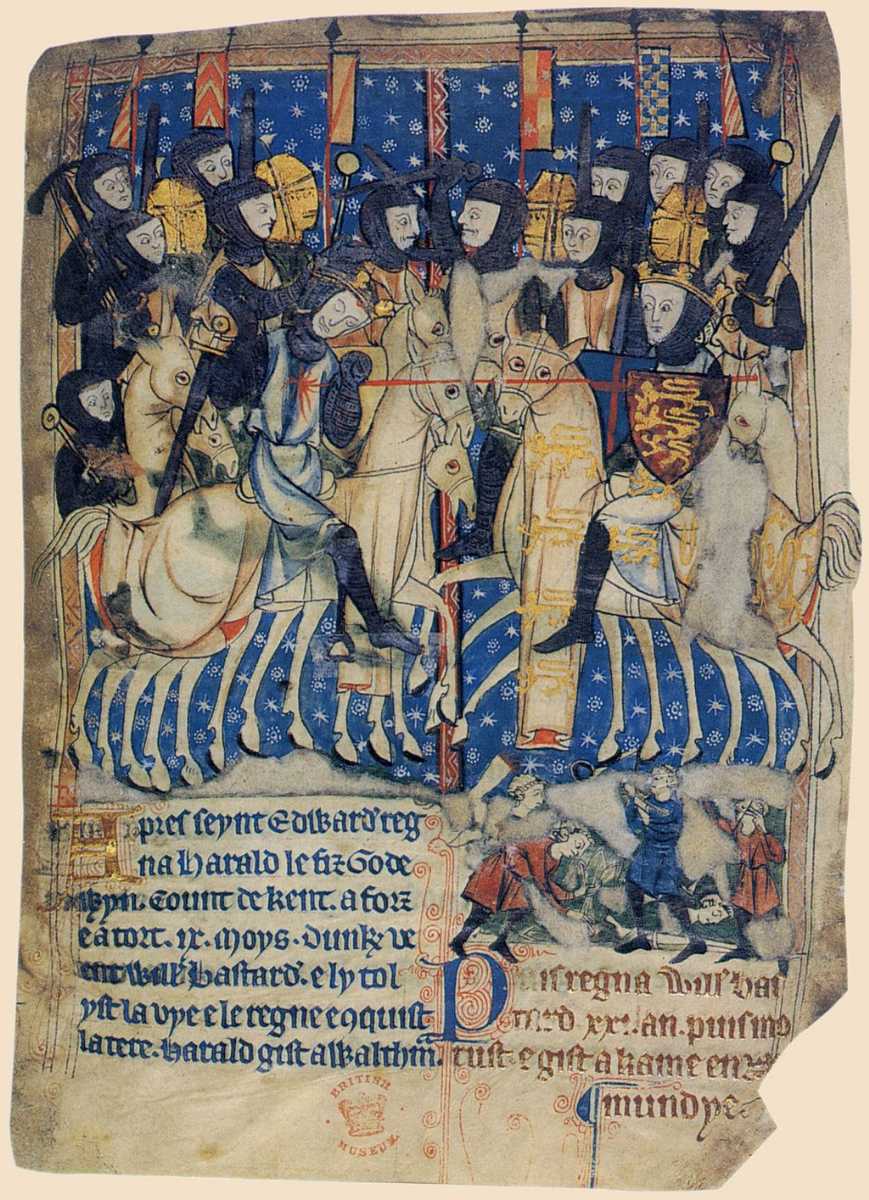 Apres seynt Edward reg
na Harald le fiz Gode
wyn. Count de kent. a forz
e a tort. ix. moys. dunk ve
ent Will' bastard'. e ly tol
yst la vye e le regne enquist
la tere. Harald gist a Waltham.
Puis regna Will' bas
tard xxi. an. puis mo
rust. e gist a kame en
mundye
BRITISH
MUSEUM